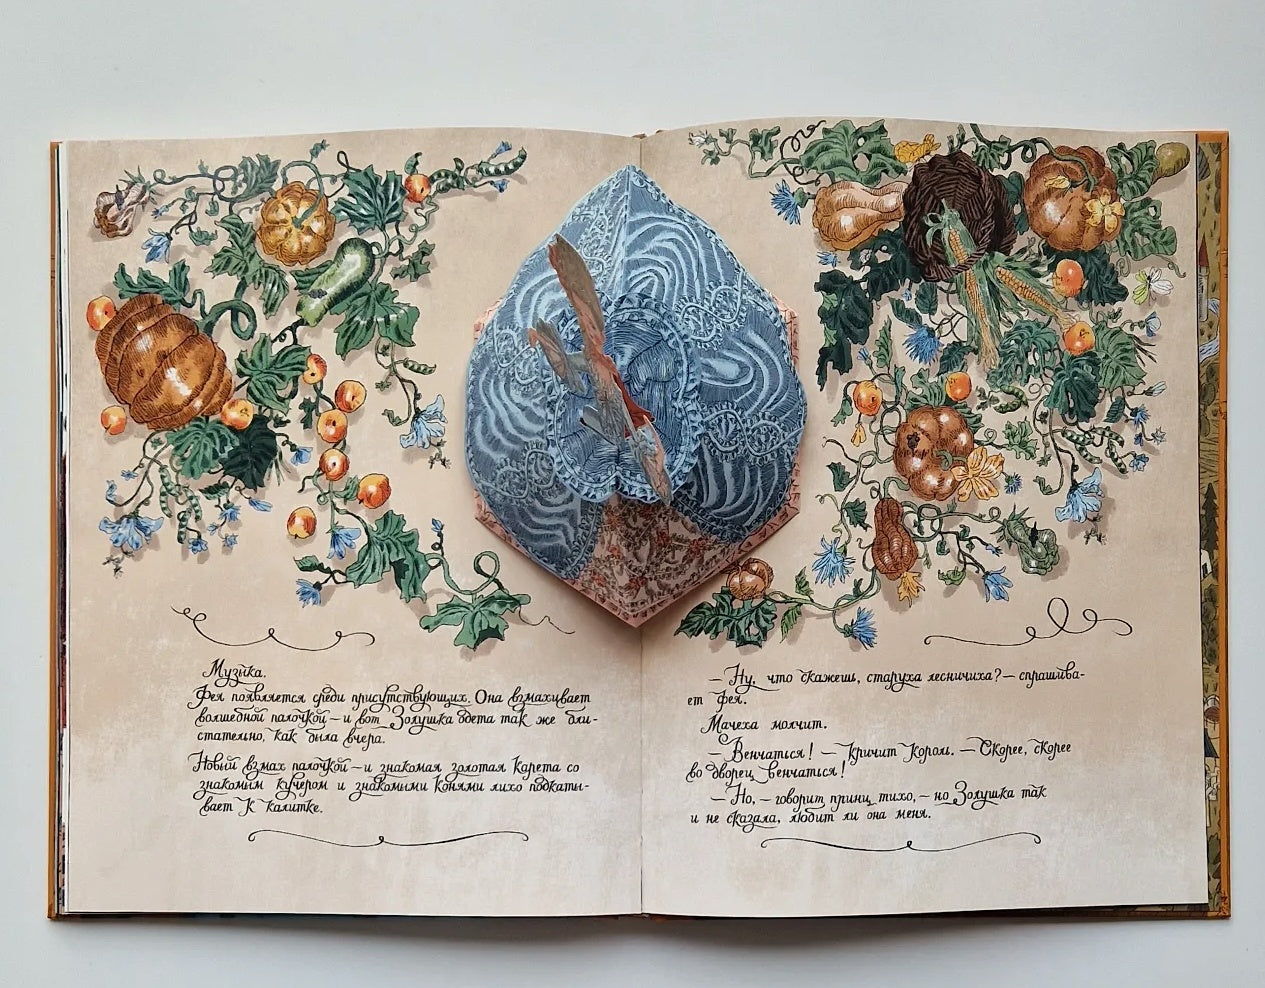 Музыка.
Фея появляется среди присутствующих. Она взмахивает
волшебной палочкой – и вот Золушка одета так же бли-
стательно, как была вчера.
Новый взмах палочкой – и знакомая золотая карета со
знакомым кучером и знакомыми конями лихо подкаты-
вает к калитке.
– Ну, что скажешь, старуха лесничиха? – спрашива-
ет фея.
Мачеха молчит.
– Венчаться! – кричит король. – Скорее, скорее
во дворец венчаться!
– Но, – говорит принц тихо, – но Золушка так
и не сказала, любит ли она меня.